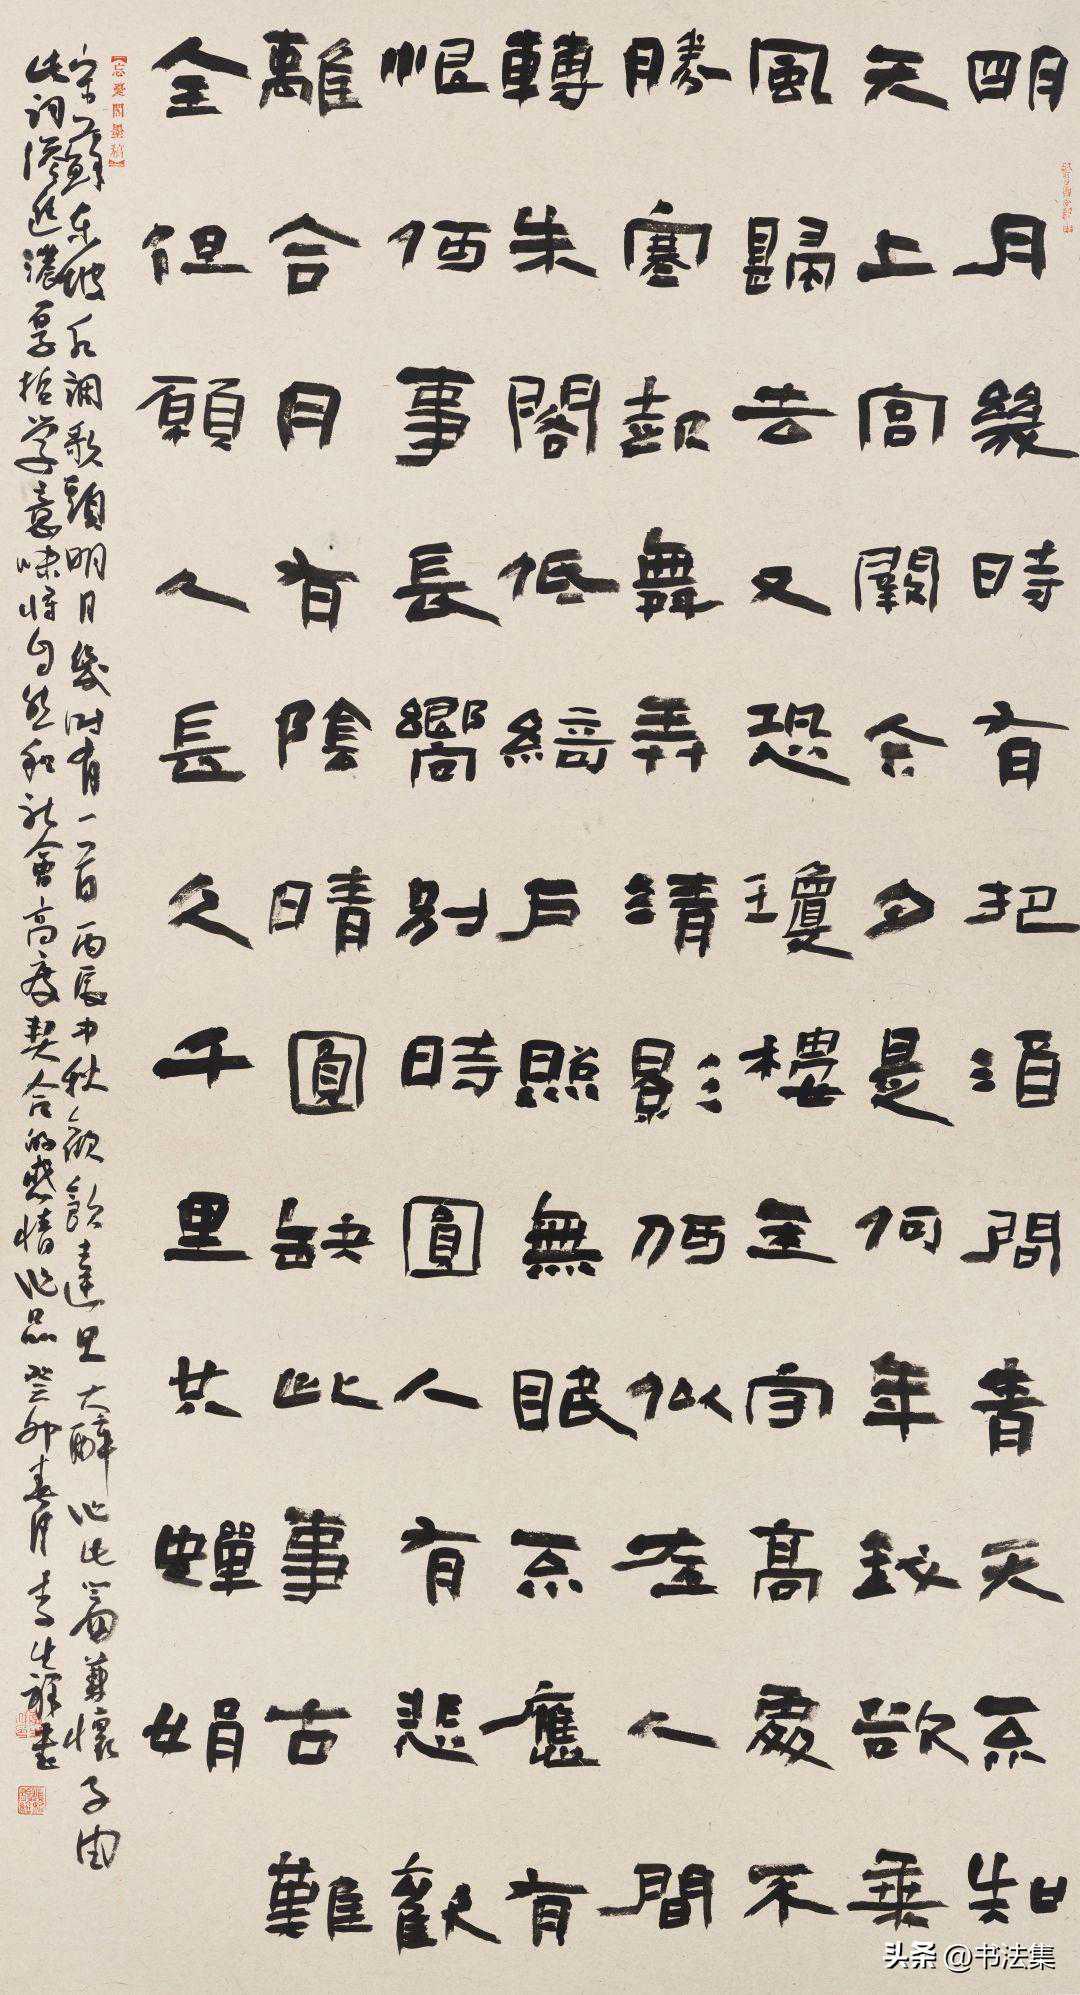 明月幾時有把酒問青天不知
天上宮闕今夕是何年我欲乘
風歸去又恐瓊樓玉宇高處不
勝寒起舞弄清影何似在人間
轉朱閣低綺戶照無眠不應有
恨何事長嚮別時圓人有悲歡
離合月有陰晴圓缺此事古難
全但願人長久千里共嬋娟
宋蘇東坡水調歌頭明月幾時有一首丙辰中秋歡飲達旦大醉作此篇兼懷子由
此詞滲透濃厚哲学意味將自然和社會高度契合的感情作品癸卯春月李生祥書
头条 @书法集